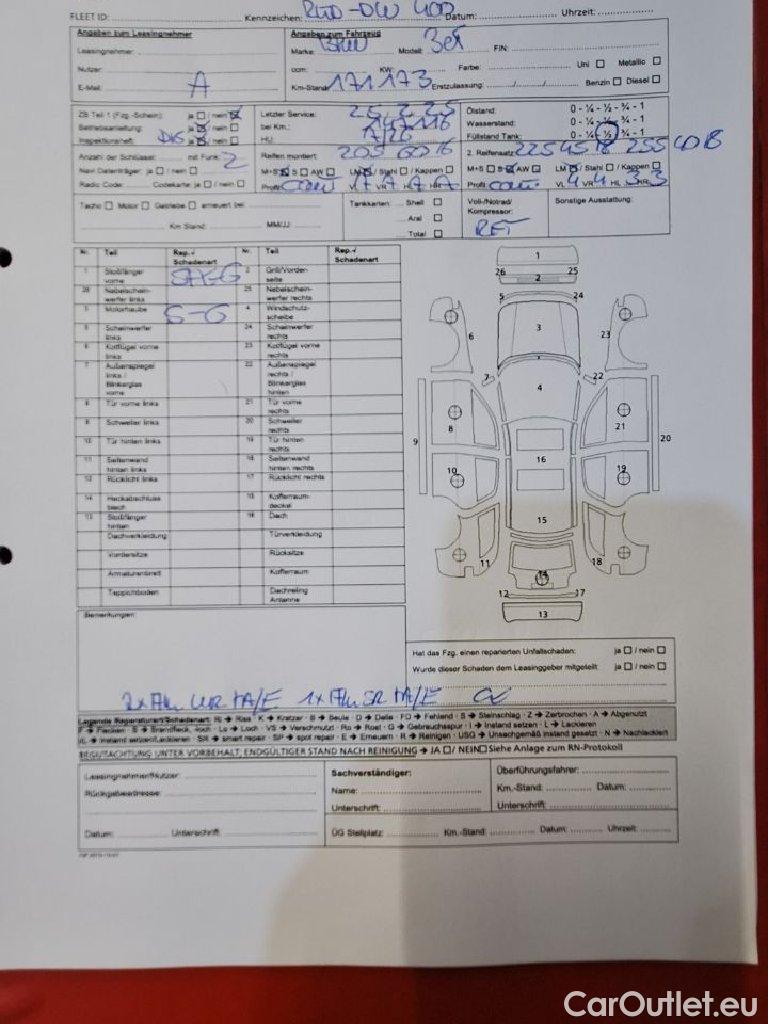 FLEET ID: Kennzeichen: Datum: Uhrzeit:
Angaben zum Leasingnehmer
Angaben zum Fahrzeug
Leasingnehmer:
Marke: BMW Modell: 3er FIN:
Nutzer:
ccm: KW: Farbe: Uni Metallic
E-Mail: A
Km-Stand: 171173 Erstzulassung: Benzin Diesel
ZB Teil 1 (Fzg.-Schein): ja / nein
Betriebsanleitung: ja / nein
Inspektionsheft: DIG ja / nein
Letzter Service: 25.2.25
bei Km.:
HU:
Ölstand: 0 - ¼ - ½ - ¾ - 1
Wasserstand: 0 - ¼ - ½ - ¾ - 1
Füllstand Tank: 0 - ¼ - ½ - ¾ - 1
Anzahl der Schlüssel: mit Funk: 2
Navi Datenträger: ja / nein
Radio Code: Codekarte: ja / nein
Reifen montiert: 205 60 16
M+S S AW LM / Stahl / Kappen
Profil: Conti VL 7 VR 7 HL 7 HR 7
2. Reifensatz: 225 45 18 255 40 18
M+S S AW LM / Stahl / Kappen
Profil: Conti VL 4 VR 4 HL 3 HR 3
Tacho Motor Getriebe erneuert bei
Km Stand: MM/JJ:
Tankkarten: Shell
Aral
Total
Voll-/Notrad/
Kompressor:
RFT
Sonstige Ausstattung:
Nr. Teil Rep.-/ Schadenart Nr. Teil Rep.-/ Schadenart
1 Stoßfänger vorne 2 Grill/Vorderseite
26 Nebelscheinwerfer links 25 Nebelscheinwerfer rechts
3 Motorhaube S-G 4 Windschutzscheibe
5 Scheinwerfer links 24 Scheinwerfer rechts
6 Kotflügel vorne links 23 Kotflügel vorne rechts
7 Außenspiegel links / Blinkerglas vorne 22 Außenspiegel rechts / Blinkerglas hinten
8 Tür vorne links 21 Tür vorne rechts
9 Schweller links 20 Schweller rechts
10 Tür hinten links 19 Tür hinten rechts
11 Seitenwand hinten links 18 Seitenwand hinten rechts
12 Rücklicht links 17 Rücklicht rechts
14 Heckabschlussblech 15 Kofferraumdeckel
13 Stoßfänger hinten 16 Dach
Dachverkleidung Türverkleidung
Vordersitze Rücksitze
Armaturenbrett Kofferraum
Teppichboden Dachreling Antenne
1
26 25
2
5 24
3
6 23
7 22
4
8 21
9 20
10 19
16
15
11 18
14
12 17
13
Bemerkungen:
Hat das Fzg. einen reparierten Unfallschaden: ja / nein
Wurde dieser Schaden dem Leasinggeber mitgeteilt: ja / nein
Legende Reparaturart/Schadenart: Ri → Riss · K → Kratzer · B → Beule · D → Delle · FD → Fehlend · S → Steinschlag · Z → Zerbrochen · A → Abgenutzt
F → Flecken · B → Brandfleck, -loch · Lo → Loch · VS → Verschmutzt · Ro → Rost · G → Gebrauchsspur · I → Instand setzen · L → Lackieren
I/L → Instand setzen/Lackieren · SR → smart repair · SP → spot repair · E → Erneuern · R → Reinigen · USG → Unsachgemäß instand gesetzt · N → Nachlackiert
BEGUTACHTUNG UNTER VORBEHALT, ENDGÜLTIGER STAND NACH REINIGUNG → JA / NEIN Siehe Anlage zum RN-Protokoll
Leasingnehmer/Nutzer:
Rückgabeadresse:
Datum: Unterschrift:
Sachverständiger:
Name:
Unterschrift:
Überführungsfahrer:
Km.-Stand: Datum:
Unterschrift:
ÜG Stellplatz: Km.-Stand: Datum: Uhrzeit:
CarOutlet.eu